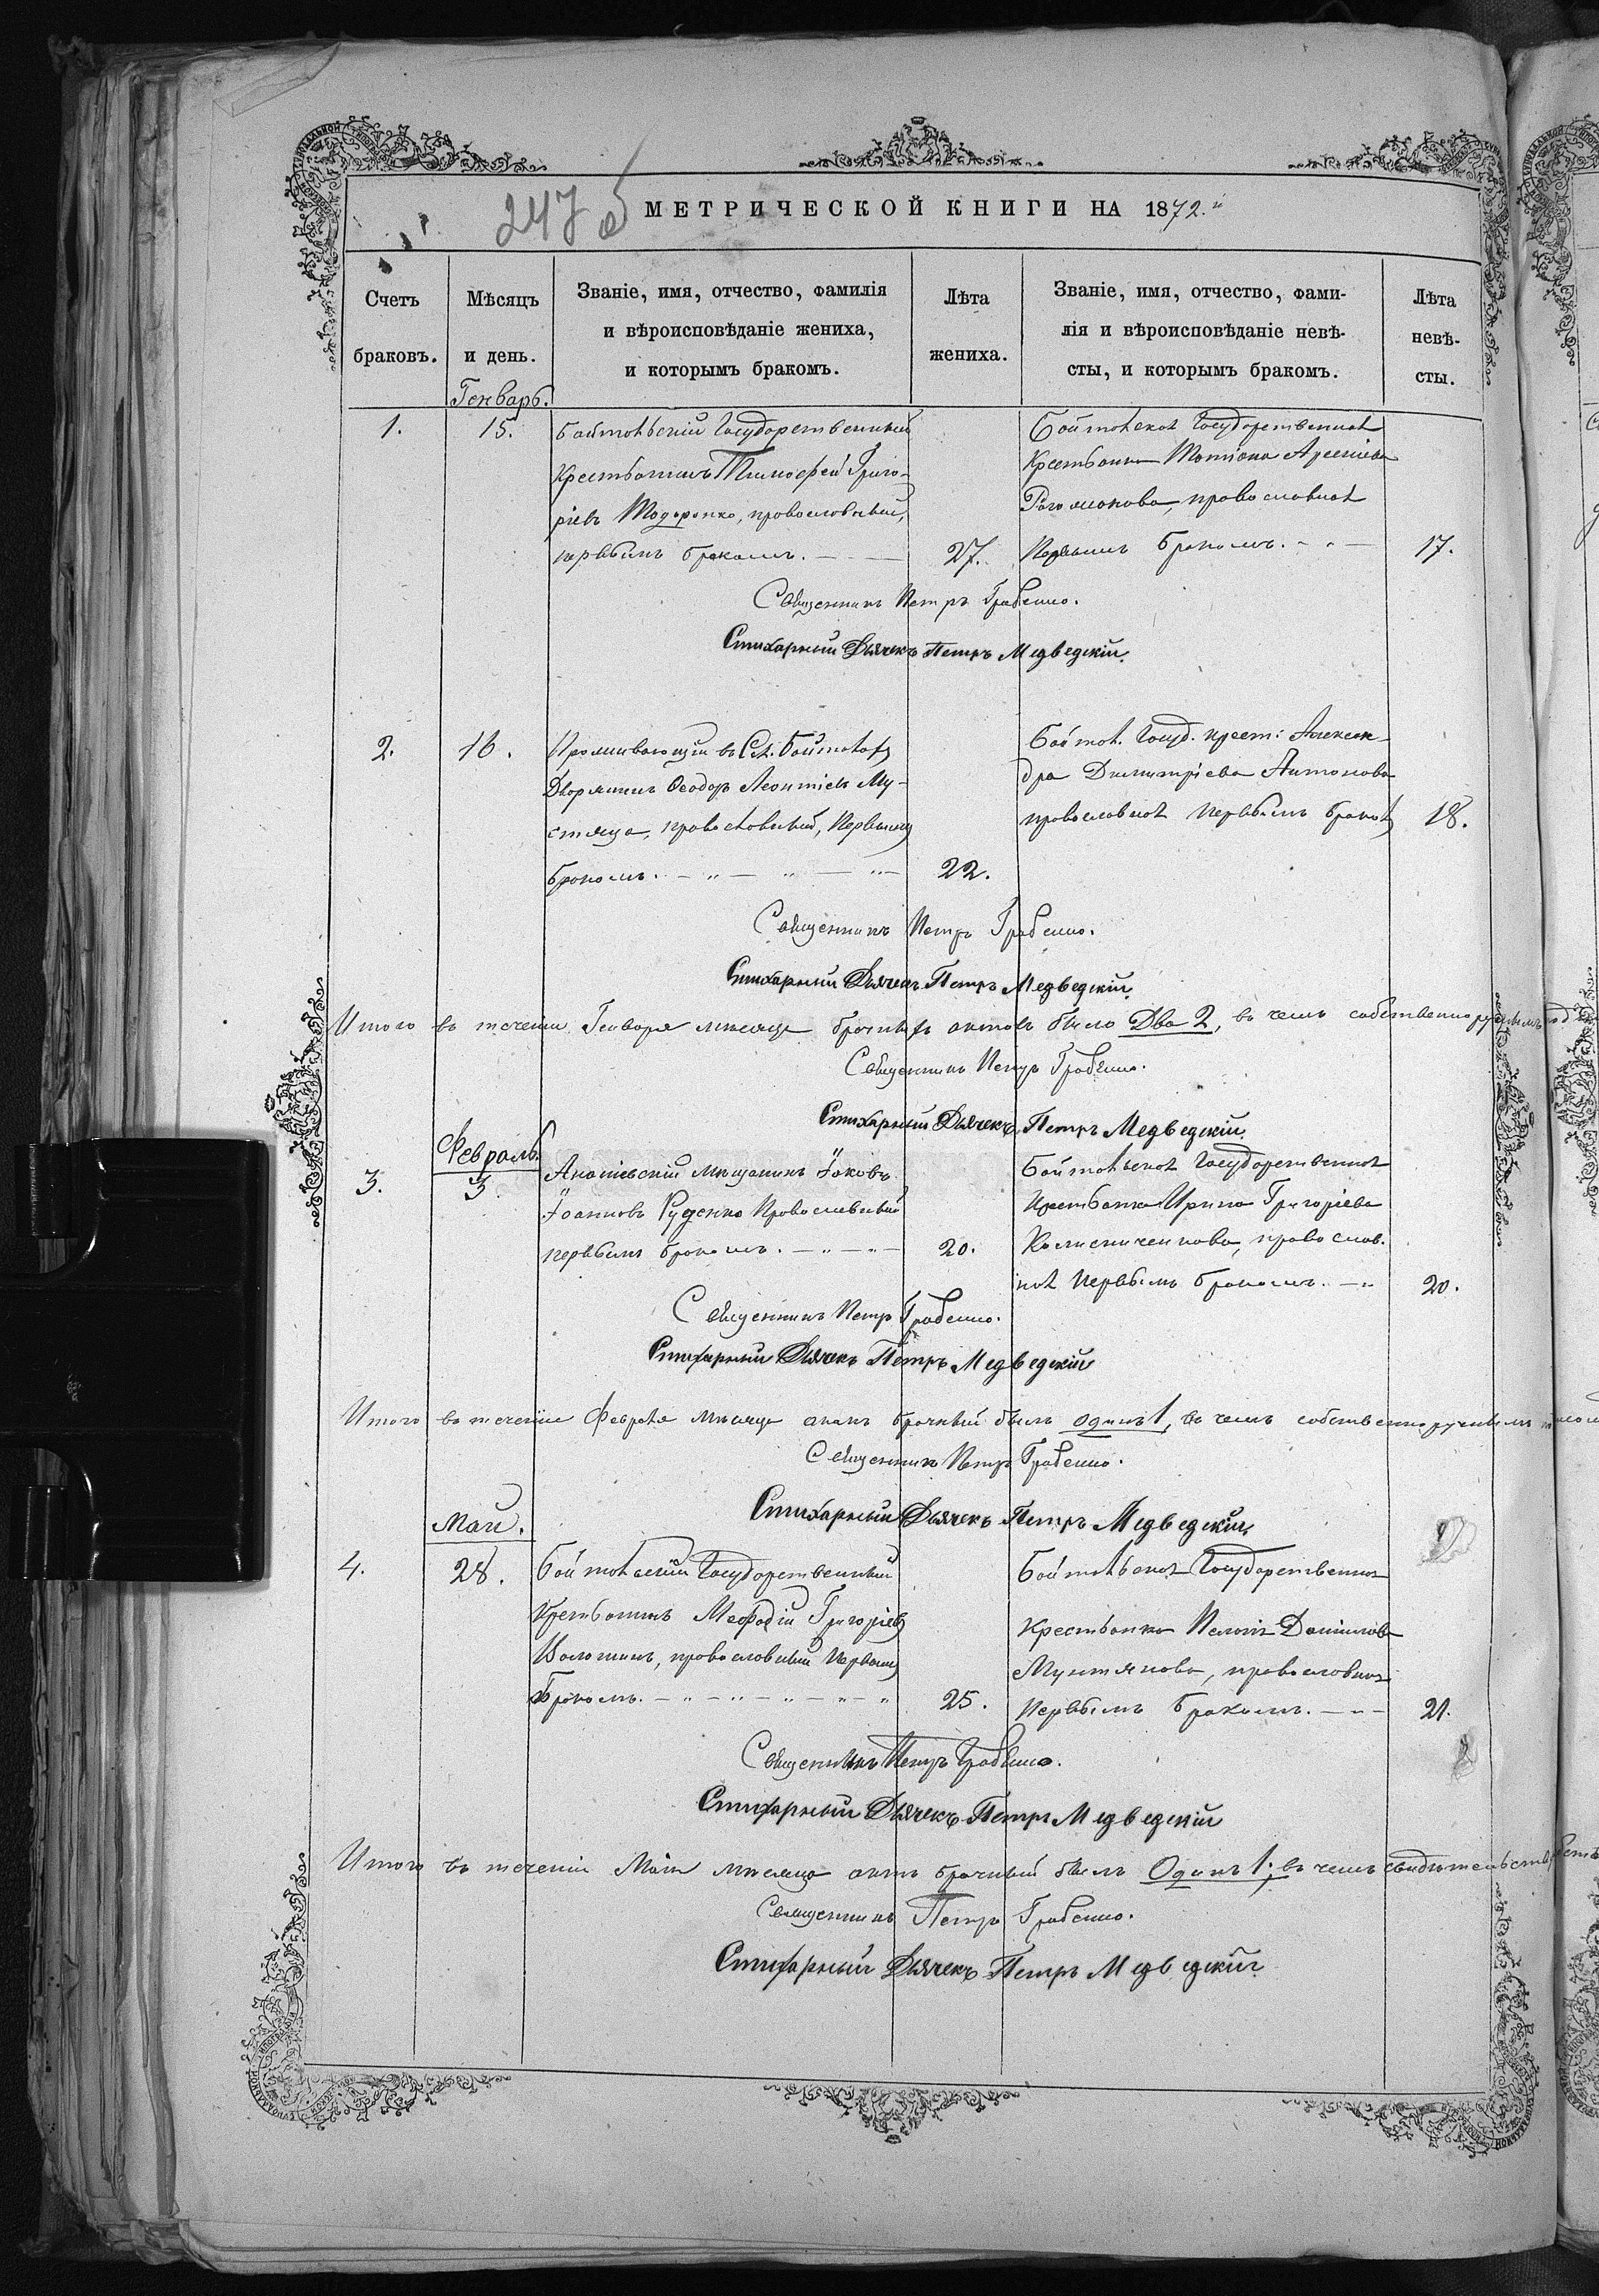 247 об
МЕТРИЧЕСКОЙ КНИГИ НА 1872.й
Счетъ
браковъ.
Мѣсяцъ
и день.
Званіе, имя, отчество, фамилія
и вѣроисповѣданіе жениха,
и которымъ бракомъ.
Лѣта
жениха.
Званіе, имя, отчество, фами-
лія и вѣроисповѣданіе невѣ-
сты, и которымъ бракомъ.
Лѣта
невѣ-
сты.
Генварь.
1.
15.
Байтальскій Государственный
Крестьянинъ Тимофей Григо-
ріевъ Тодоренко, православный,
первымъ бракомъ.
27.
Байтальская Государственная
Крестьянка Татіана Арсеніева
православная
Первымъ бракомъ.
17.
Священникъ Петръ
Стихарный Дьячекъ Петръ Медведскій.
2.
16.
Проживающій въ Сел. Байталахъ
Дворянинъ Ѳеодоръ Леонтіевъ Му-
стяца, православный, Первымъ
бракомъ.
22.
Байтал. Госуд. крест: Алексан-
дра Димитріева Антонова
православная Первымъ брако
18.
Священникъ Петръ
Стихарный Дьячекъ Петръ Медведскій.
Итого въ теченіи Генваря месяца брачныхъ актовъ было Два 2, въ чемъ собственноручнымъ под
Священникъ Петръ
Стихарный Дьячекъ Петръ Медведскій.
Февраль.
3.
3.
Ананьевскій мещанинъ Іаковъ
Іоанновъ Руденко Православный
первымъ бракомъ.
20.
Байтальская Государственная
Крестьянка Ирина Григоріева
Колисниченкова, православ.
ная Первымъ бракомъ.
20.
Священникъ Петръ
Стихарный Дьячекъ Петръ Медведскій
Итого въ теченіи Февраля месяца актъ брачный былъ одинъ 1, въ чемъ собственноручнымъ
Священникъ Петръ
Стихарный Дьячекъ Петръ Медведскій.
Маій.
4.
28.
Байтальскій Государственный
Крестьянинъ Меѳодій Григоріевъ
Волошинъ, православный Первымъ
Бракомъ.
25.
Байтальская Государственная
Крестьянка Пелагія Даніилова
Мунтянова, православная
Первымъ бракомъ.
21.
Священникъ Петръ
Стихарный Дьячекъ Петръ Медведскій
Итого въ теченіи Маія месяца актъ брачный былъ Одинъ 1; въ чемъ
Священникъ Петръ
Стихарный Дьячекъ Петръ Медведскій.